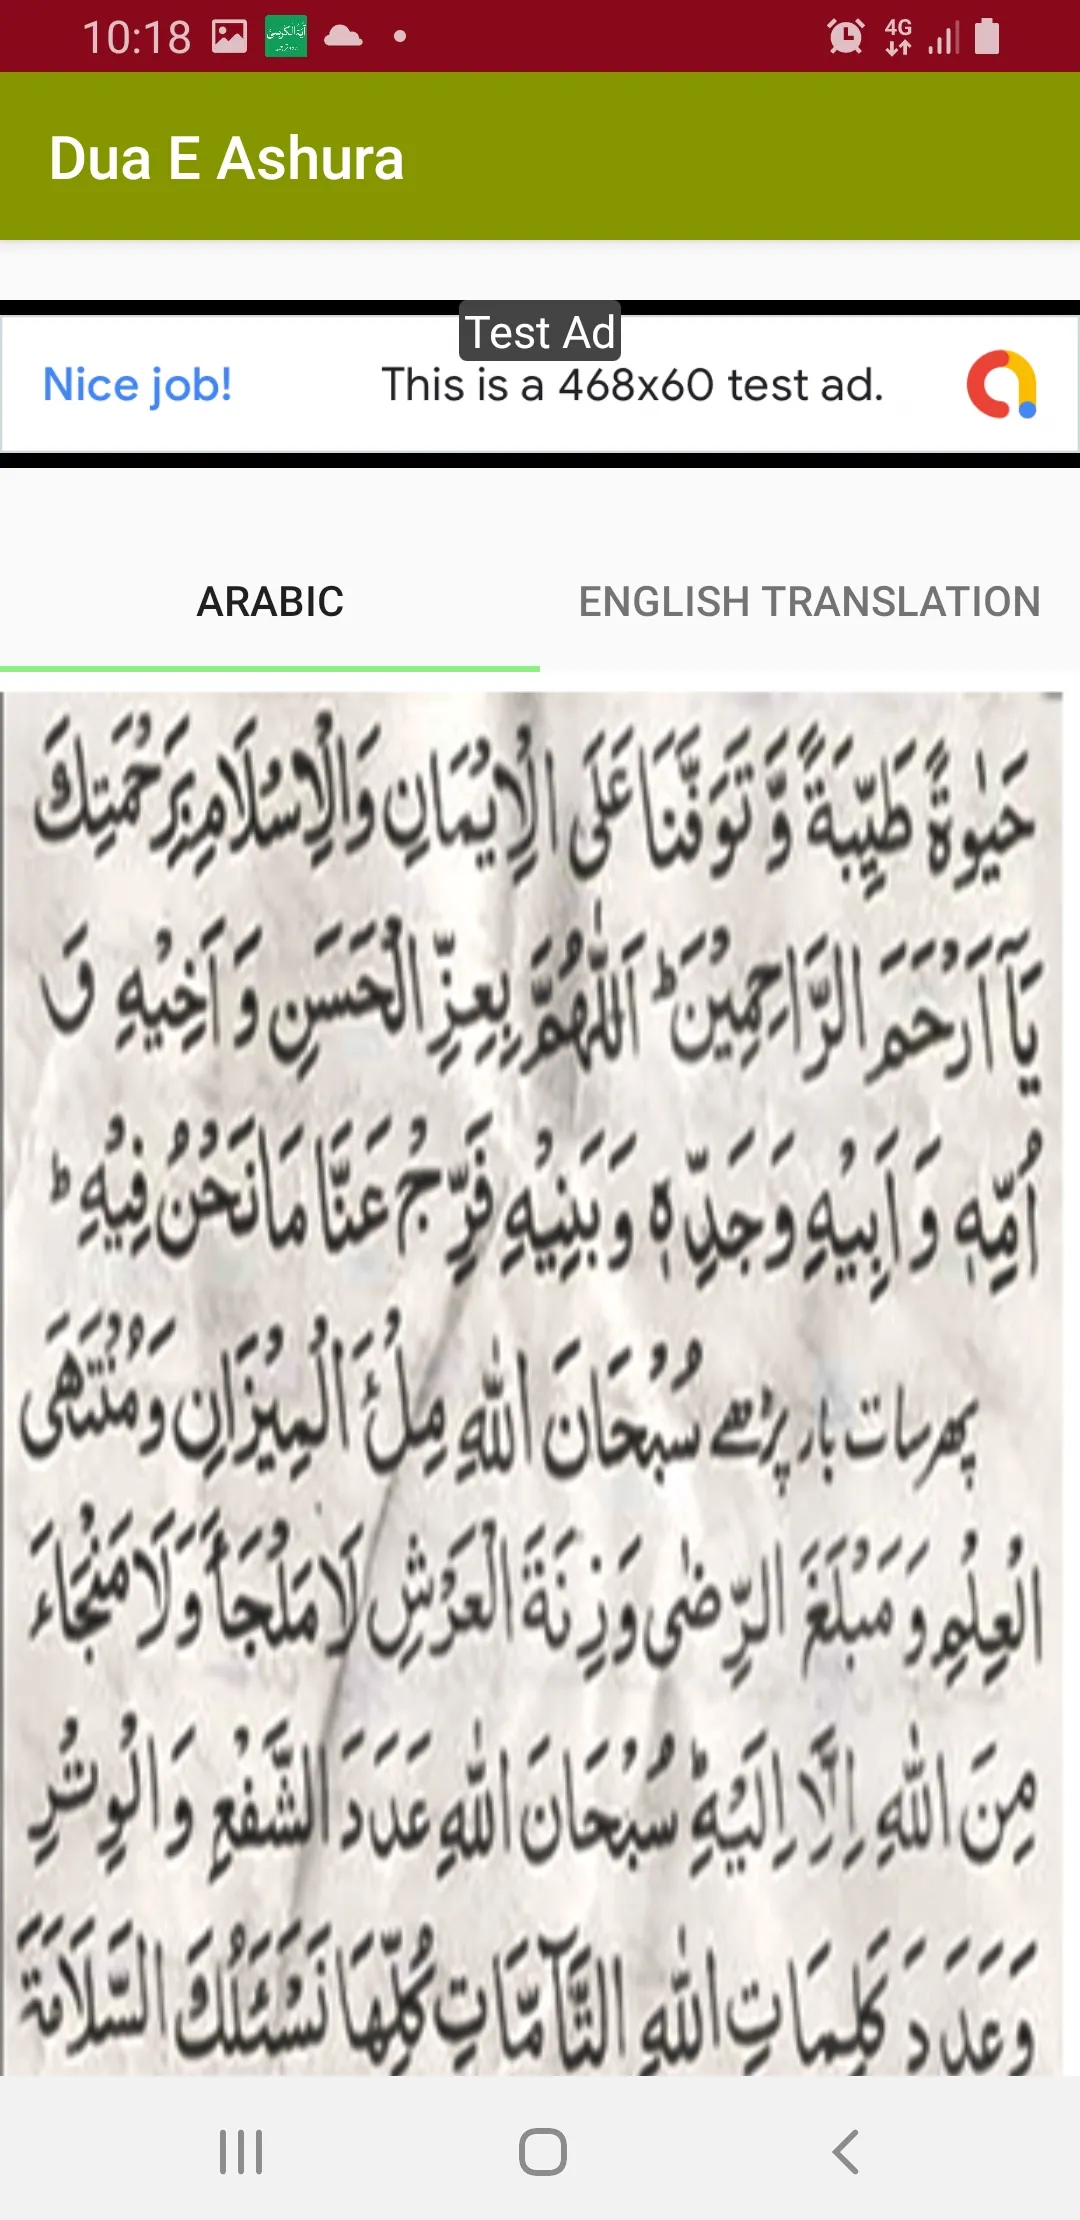 10:18
4G
Dua E Ashura
Test Ad
Nice job! This is a 468x60 test ad.
ARABIC ENGLISH TRANSLATION
حَیٰوةً طَیِّبَةً وَّ تَوَفَّنَا عَلَی الْاِیْمَانِ وَالْاِسْلَامِ بِرَحْمَتِكَ
یَآ اَرْحَمَ الرَّاحِمِیْنَ ؕ اَللّٰهُمَّ بِعِزِّ الْحَسَنِ وَ اَخِیْهِ وَ
اُمِّهٖ وَ اَبِیْهِ وَ جَدِّهٖ وَ بَنِیْهِ فَرِّجْ عَنَّا مَا نَحْنُ فِیْهِ ؕ
پھر سات بار پڑھے سُبْحَانَ اللّٰهِ مِلْئَ الْمِیْزَانِ وَ مُنْتَهَی
الْعِلْمِ وَ مَبْلَغَ الرِّضٰی وَ زِنَةَ الْعَرْشِ لَا مَلْجَاَ وَلَا مَنْجَاءَ
مِنَ اللّٰهِ اِلَّا اِلَیْهِ ؕ سُبْحَانَ اللّٰهِ عَدَدَ الشَّفْعِ وَ الْوِتْرِ
وَ عَدَدَ كَلِمَاتِ اللّٰهِ التَّآمَّاتِ كُلِّهَا نَسْئَلُكَ السَّلَامَةَ